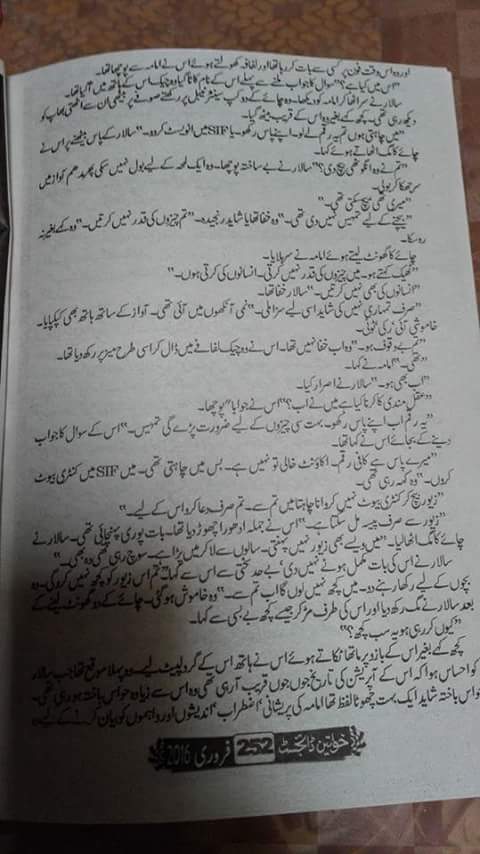 اور وہ اس وقت فون پر کسی سے بات کر رہا تھا اور لفافہ کھولتے ہوئے اس نے امامہ سے پوچھا تھا۔
"اس میں کیا ہے؟" سوال کا جواب ملنے سے پہلے اس کے نام کا کاٹا گیا وہ چیک اس کے ہاتھ میں آ گیا تھا۔
سالار نے سر اٹھا کر امامہ کو دیکھا۔ وہ چائے کے دو کپ سینٹر ٹیبل پر رکھتے صوفے پر بیٹھی ان سے اٹھتی بھاپ کو
دیکھ رہی تھی۔ کچھ کہے بغیر وہ اس کے قریب بیٹھ گیا۔
"میں چاہتی ہوں تم یہ رقم لے لو۔ اپنے پاس رکھو۔ یا SIF میں انویسٹ کر دو۔" سالار کے پاس بیٹھنے پر اس نے
چائے کا مگ اٹھاتے ہوئے کہا۔
"تم نے وہ انگوٹھی بیچ دی؟" سالار نے بے ساختہ پوچھا۔ وہ ایک لمحہ کے لیے بول نہیں سکی پھر مدھم آواز میں
سر جھکا کر بولی۔
"میری تھی بیچ سکتی تھی۔"
"بیچنے کے لیے تمہیں نہیں دی تھی۔" وہ خفا تھا یا شاید رنجیدہ۔ "تم چیزوں کی قدر نہیں کرتیں۔" وہ کہے بغیر نہ
رہ سکا۔
چائے کا گھونٹ لیتے ہوئے امامہ نے سر ہلایا۔
"ٹھیک کہتے ہو۔ میں چیزوں کی قدر نہیں کرتی۔ انسانوں کی کرتی ہوں۔"
"انسانوں کی بھی نہیں کرتیں۔" سالار خفا تھا۔
"صرف تمہاری نہیں کی شاید اسی لیے سزا ملی۔" نمی آنکھوں میں آئی تھی۔ آواز کے ساتھ ہاتھ بھی کپکپایا۔
خاموشی آئی رکی ٹوٹی۔
"تم بے وقوف ہو۔" وہ اب خفا نہیں تھا۔ اس نے وہ چیک لفافے میں ڈال کر اسی طرح میز پر رکھ دیا تھا۔
"تھی۔" امامہ نے کہا۔
"اب بھی ہو۔" سالار نے اصرار کیا۔
"عقل مندی کا کرنا کیا ہے میں نے اب؟" اس نے جواباً پوچھا۔
"یہ رقم اب اپنے پاس رکھو۔ بہت سی چیزوں کے لیے ضرورت پڑے گی تمہیں۔" اس کے سوال کا جواب
دینے کے بجائے اس نے کہا تھا۔
"میرے پاس ہے کافی رقم۔ اکاؤنٹ خالی تو نہیں ہے۔ بس میں چاہتی تھی۔ میں SIF میں کنٹری بیوٹ
کروں۔" وہ کہہ رہی تھی۔
"زیور بیچ کر کنٹری بیوٹ نہیں کروانا چاہتا میں تم سے۔ تم صرف دعا کرو اس کے لیے۔"
"زیور سے صرف پیسہ مل سکتا ہے۔" اس نے جملہ ادھورا چھوڑ دیا تھا۔ بات پوری پہنچائی تھی۔ سالار نے
چائے کا مگ اٹھا لیا۔ "میں ویسے بھی زیور نہیں پہنتی۔ سالوں سے لاکر میں پڑا ہے۔ سوچ رہی تھی وہ بھی۔"
سالار نے اس کی بات مکمل ہونے نہیں دی، بے حد سختی سے اس سے کہا۔ "تم اس زیور کو کچھ نہیں کرو گی۔ وہ
بچوں کے لیے رکھا رہنے دو۔ میں کچھ نہیں لوں گا اب تم سے۔" وہ خاموش ہو گئی۔ چائے کے دو گھونٹ لینے کے
بعد سالار نے مگ رکھ دیا اور اس کی طرف مڑ کر جیسے کچھ بے بسی سے کہا۔
"کیوں کر رہی ہو یہ سب کچھ؟"
کچھ کہے بغیر اس کے بازو پر ماتھا ٹکاتے ہوئے اس نے ہاتھ اس کے گرد لپیٹ لیے۔ وہ پہلا موقع تھا جب سالار
کو احساس ہوا کہ اس کے آپریشن کی تاریخ جوں جوں قریب آ رہی تھی وہ اس سے زیادہ حواس باختہ ہو رہی تھی۔
حواس باختہ شاید ایک بہت چھوٹا لفظ تھا امامہ کی پریشانی، اضطراب، اندیشوں اور واہموں کو بیان کرنے کے لیے۔ وہ
خواتین ڈائجسٹ 252 فروری 2016